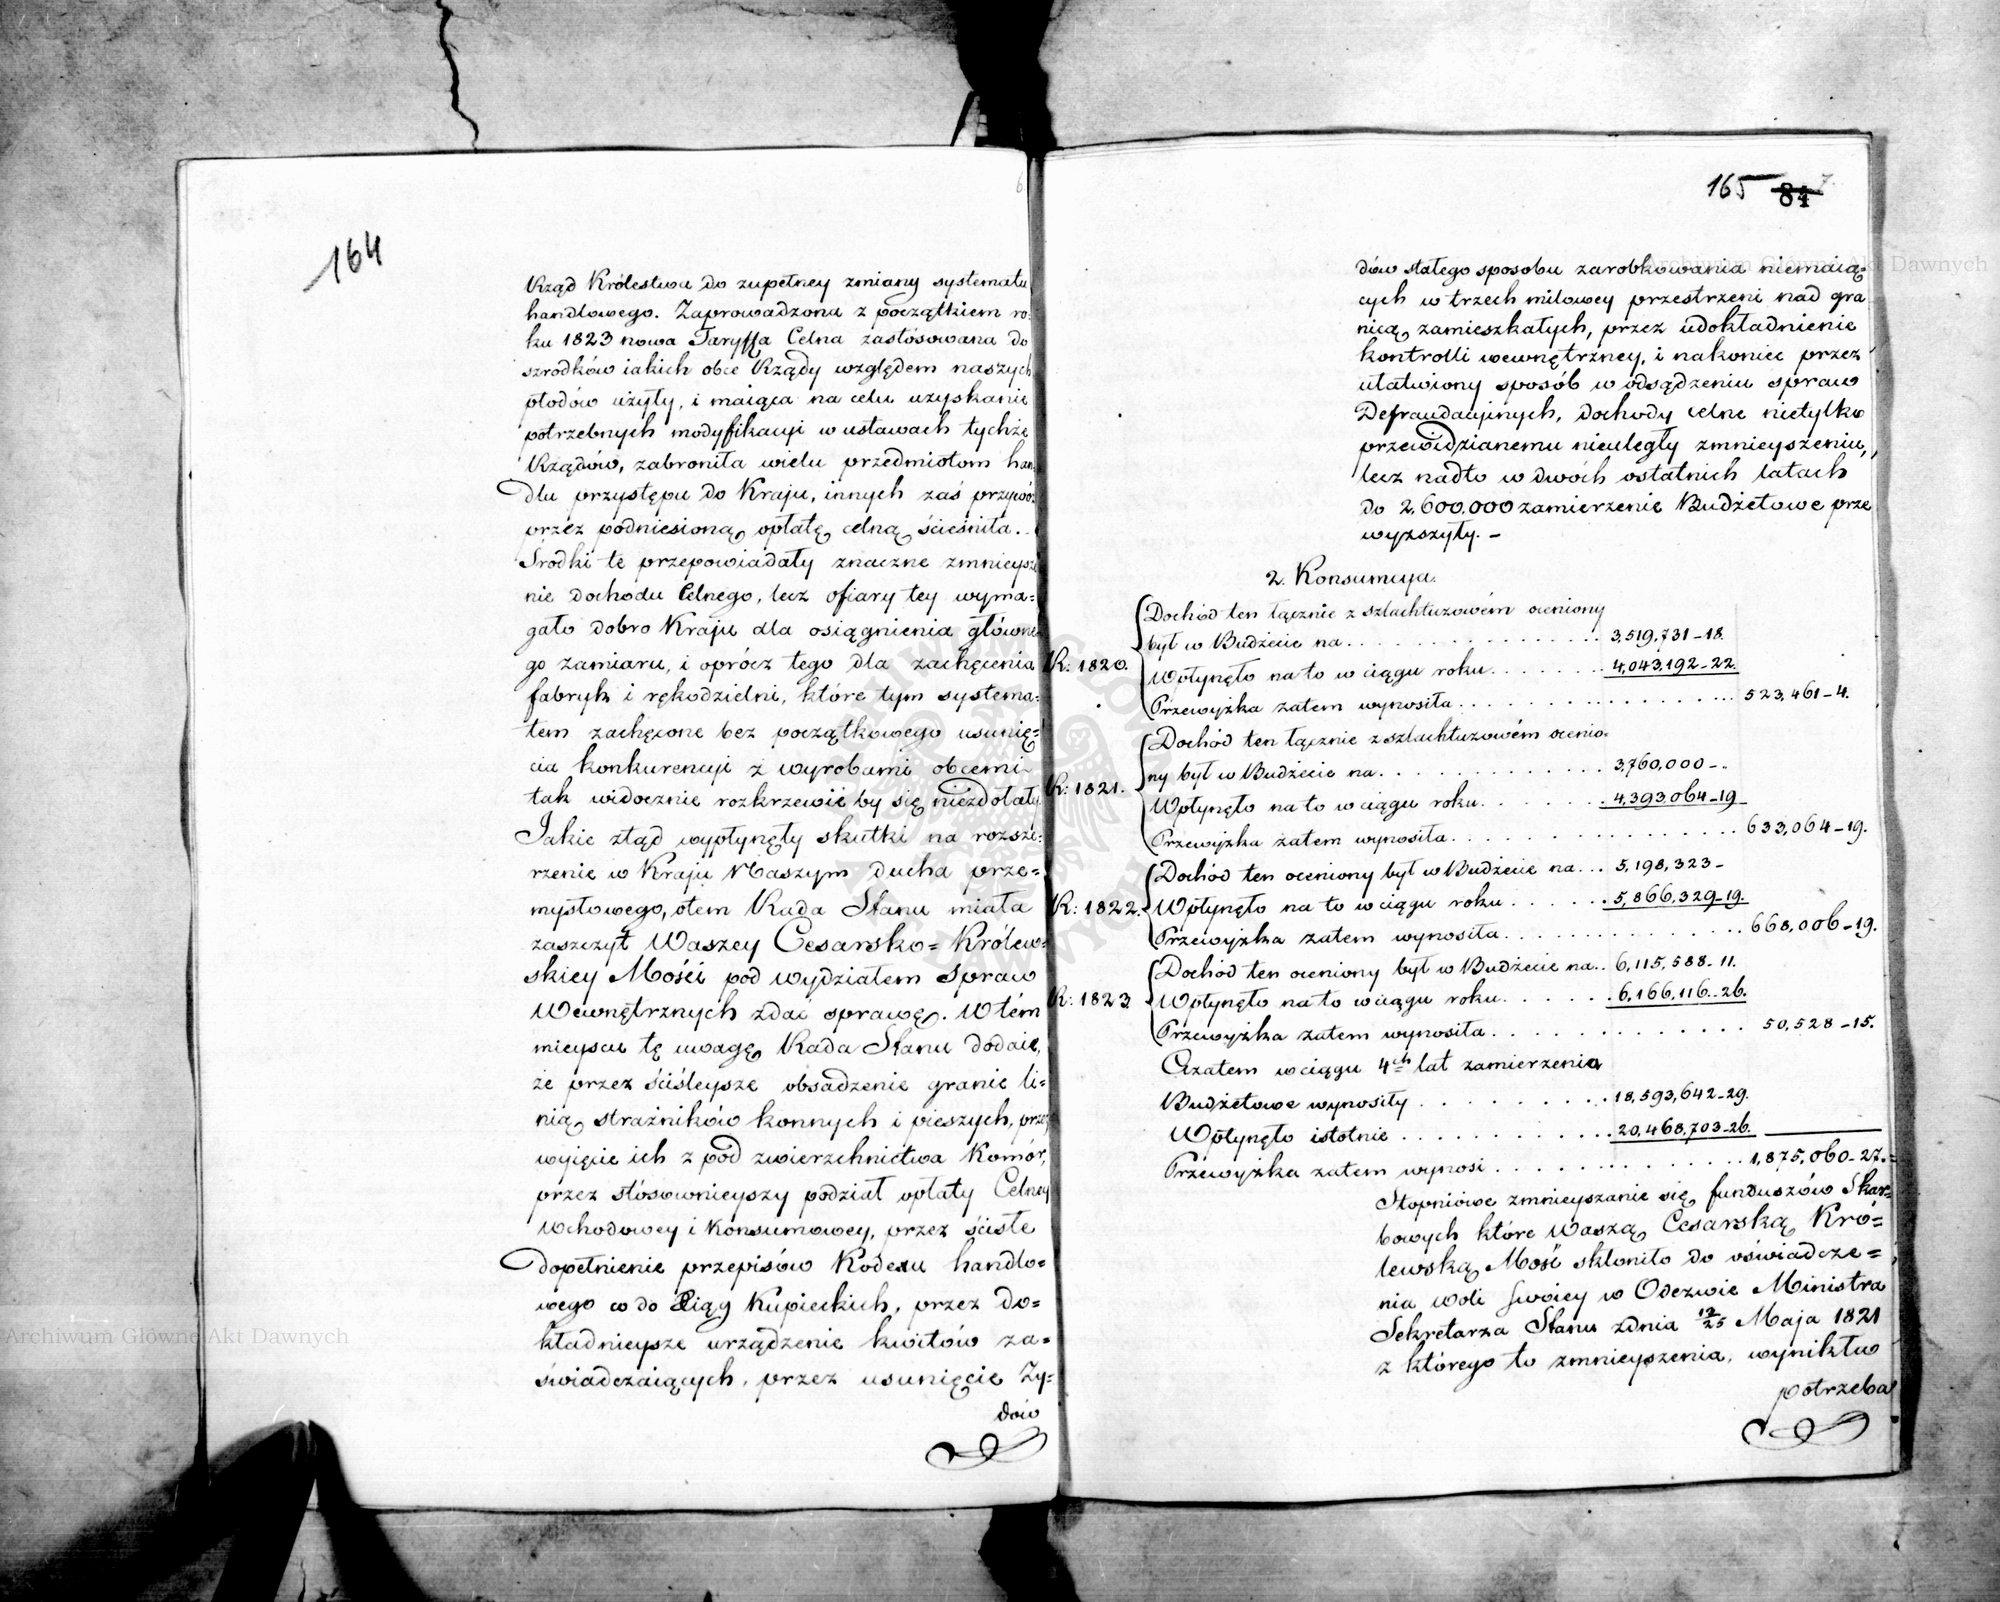 164
Rząd Królestwa do zupełney zmiany systematu
handlowego. Zaprowadzona z początkiem ro:
ku 1823 nowa Taryffa Celna zastósowana do
szrodków iakich obce Rządy względem naszych
płodów użyły, i maiąca na celu uzyskanie
potrzebnych modyfikacyi w ustawach tychże
Rządów, zabroniła wielu przedmiotom han
dlu przystępu do Kraju, innych zaś przywóz
przez podniesioną opłatę celną ścieśniła.
Środki te przepowiadały znaczne zmnieysze
nie dochodu Celnego, lecz ofiary tey wyma=
gało dobro Kraju dla osiągnienia główne
go zamiaru, i oprócz tego dla zachęcenia
fabryk i rękodzielni, które tym systema=
tem zachęcone bez początkowego usunię=
cia konkurencyi z wyrobami obcemi
tak widocznie rozkrzewić by się niezdołały
Jakie ztąd wypłynęły skutki na rozsze:
rzenie w Kraju Naszym ducha prze=
mysłowego, otem Rada Stanu miała
zaszczyt Waszey Cesarsko=Królew=
skiey Mości pod wydziałem Spraw
Wewnętrznych zdać sprawę. W tém
mieyscu tę uwagę Rada Stanu dodaie,
że przez ściśleysze obsadzenie granic li=
nią strażników konnych i pieszych, przez
wyięcie ich z pod zwierzchnictwa Komór,
przez stósownieyszy podział opłaty Celney
Wchodowey i Konsumowey, przez ścisłe
dopełnienie przepisów Kodexu handlo=
wego co do Xiąg Kupieckich, przez do=
kładnieysze urządzenie kwitów za=
świadczaiących, przez usunięcie Zy=
dów
165 84 7.
dów stałego sposobu zarobkowania niemaią=
cych w trzech milowey przestrzeni nad gra
nicą zamieszkałych, przez udokładnienie
kontrolli wewnętrzney, i nakoniec przez
ułatwiony sposób w odsądzeniu spraw
Defraudacyinych, dochody celne nietylko
przewidzianemu nieuległy zmnieyszeniu,
lecz nadto w dwóch ostatnich latach
do 2,600,000 zamierzenie Budżetowe prze
wyższyły. –
2. Konsumcya.
Dochód ten łącznie z szlachtuzowém oceniony
był w Budżecie na . . . 3,519,731–18.
R: 1820. Wpłynęło na to w ciągu roku . . . 4,043,192–22.
Przewyżka zatem wynosiła . . . 523,461–4.
Dochód ten łącznie z szlachtuzowém ocenio=
ny był w Budżecie na . . . 3,760,000–.
R: 1821. Wpłynęło na to w ciągu roku . . . 4,393,064–19
Przewyżka zatem wynosiła . . . 633,064–19.
Dochód ten oceniony był w Budżecie na . . . 5,198,323–
R: 1822. Wpłynęło na to w ciągu roku . . . 5,866,329–19.
Przewyżka zatem wynosiła . . . 668,006–19.
Dochód ten oceniony był w Budżecie na . . 6,115,588–11.
R: 1823 Wpłynęło na to w ciągu roku . . . 6,166,116–26.
Przewyżka zatem wynosiła . . . 50,528–15.
Azatem w ciągu 4ch lat zamierzenia
Budżetowe wynosiły . . . 18,593,642–29.
Wpłynęło istotnie . . . 20,468,703–26.
Przewyżka zatem wynosi . . . 1,875,060–27.
Stopniowe zmnieyszanie się funduszów Skar=
bowych które Waszą Cesarską Kró=
lewską Mość skłoniło do oświadcze=
nia woli swoiey w Odezwie Ministra
Sekretarza Stanu zdnia 13/25 Maja 1821
z którego to zmnieyszenia, wynikła
potrzeba
Archiwum Główne Akt Dawnych
Archiwum Główne Akt Dawnych